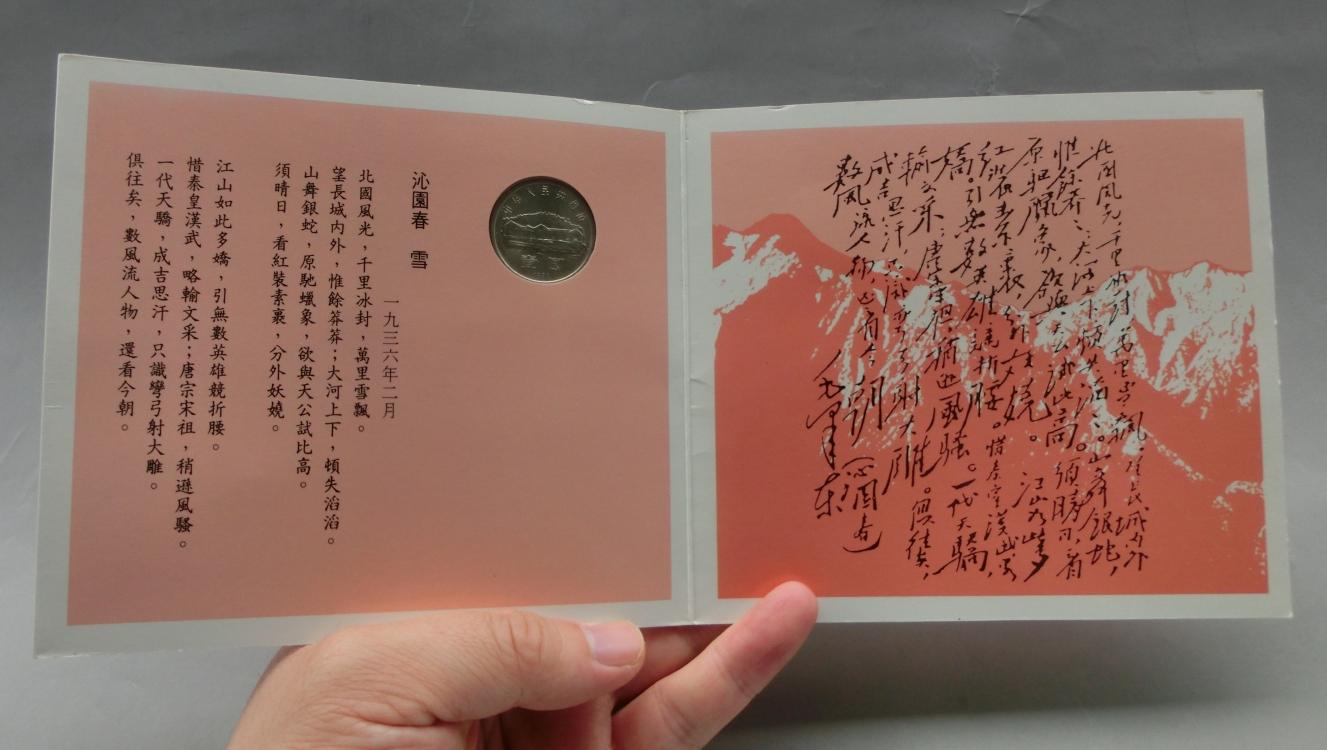 中华人民共和国
壹元
沁園春 雪
一九三六年二月
北國風光，千里冰封，萬里雪飄。
望長城内外，惟餘莽莽；大河上下，頓失滔滔。
山舞銀蛇，原馳蠟象，欲與天公試比高。
須晴日，看紅裝素裹，分外妖嬈。
江山如此多嬌，引無數英雄競折腰。
惜秦皇漢武，略輸文采；唐宗宋祖，稍遜風騷。
一代天驕，成吉思汗，只識彎弓射大雕。
俱往矣，數風流人物，還看今朝。
北國風光，千里冰封，萬里雪飄。望長城內外
惟餘莽々；大河上下頓失滔々。山舞銀蛇，
原驅臘象，欲與天公試比高。須晴日，看
紅裝素裹，分外妖嬈。江山如此多
嬌。引無數英雄競折腰。惜秦皇漢武，略
輸文采；唐宗宋祖，稍遜風騷。一代天驕，
成吉思汗，只識彎弓射大雕。俱往矣，
數風流人物，還看今朝
毛澤東
（沁園春）